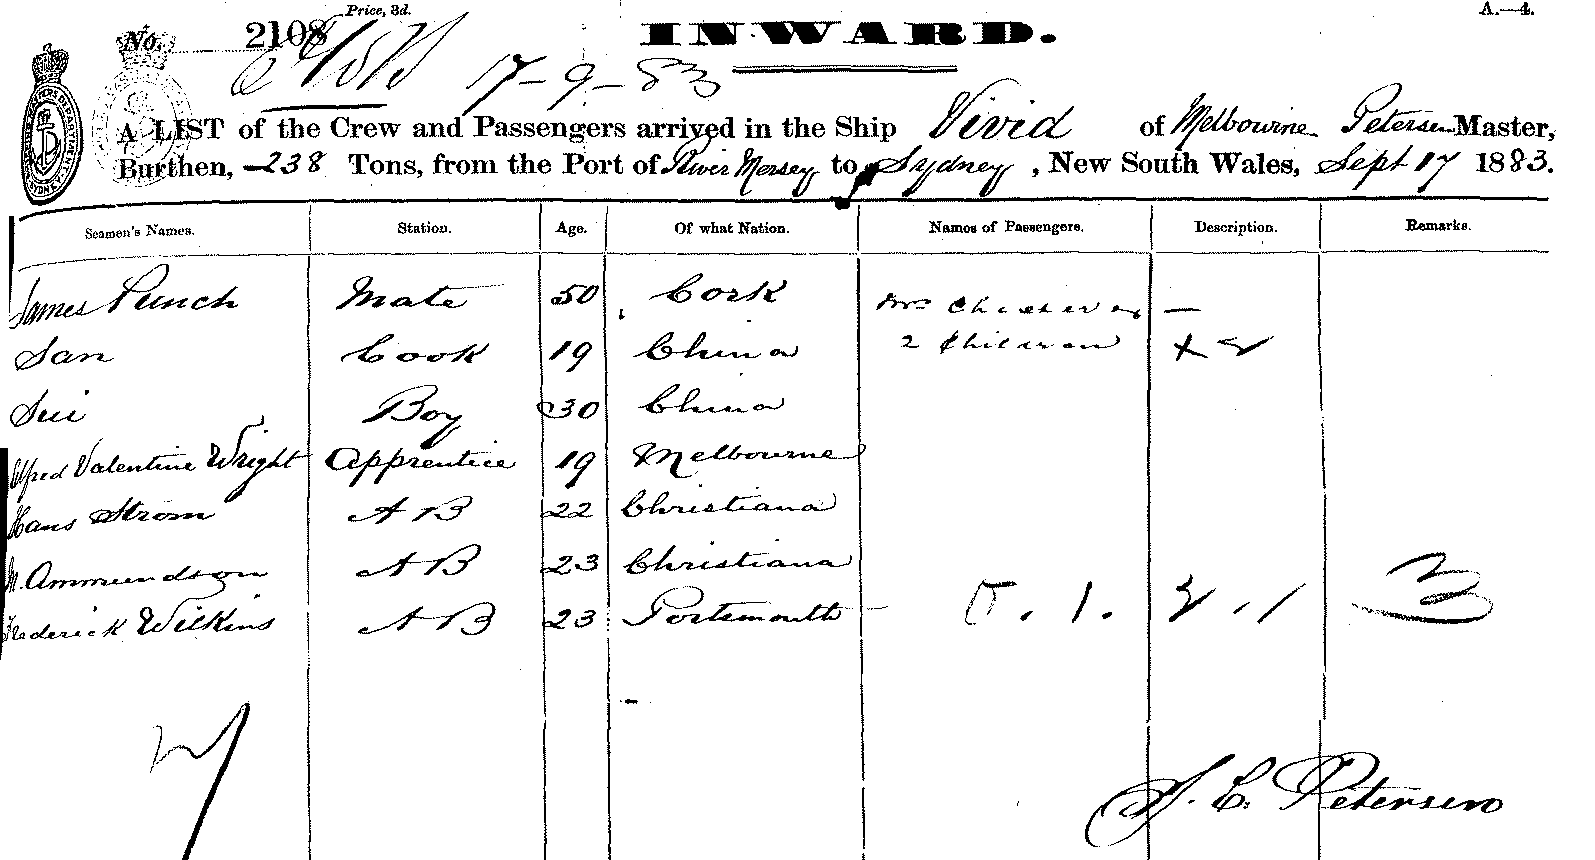 Price, 3d.
A.—4.
No. 2108 INWARD.
17-9-83
A LIST of the Crew and Passengers arrived in the Ship Vivid of Melbourne Petersen Master,
Burthen, 238 Tons, from the Port of River Mersey to Sydney, New South Wales, Sept 17 1883.
Seamen's Names. Station. Age. Of what Nation. Names of Passengers. Description. Remarks.
James Punch Mate 50 Cork Mrs —
San Cook 19 China 2 Children
Sui Boy 30 China
Alfred Valentine Wright Apprentice 19 Melbourne
Hans Strom A B 22 Christiana
M. Ammundson A B 23 Christiana
Frederick Wilkins A B 23 Portsmouth
3
7
Petersen